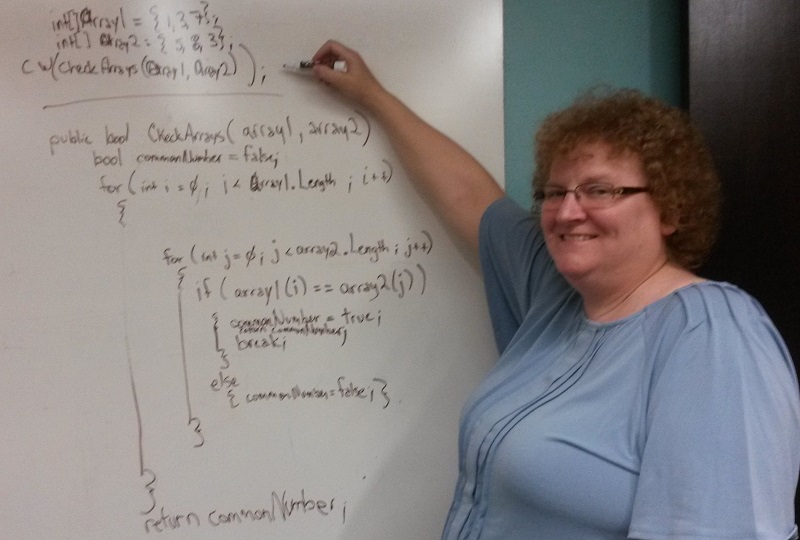 int[] Array1 = { 1, 3, 7};
int[] Array2 = { 5, 8, 3};
CW(CheckArrays(Array1, Array2));
public bool CheckArrays( array1, array2)
bool commonNumber = false;
for( int i = 0; i < Array1.Length ; i++)
{
for (int j = 0; j < array2.Length ; j++)
{
if ( array1(i) == array2(j) )
{ commonNumber = true;
return commonNumber;
break;
}
else
{ commonNumber = false; }
}
}
return commonNumber;